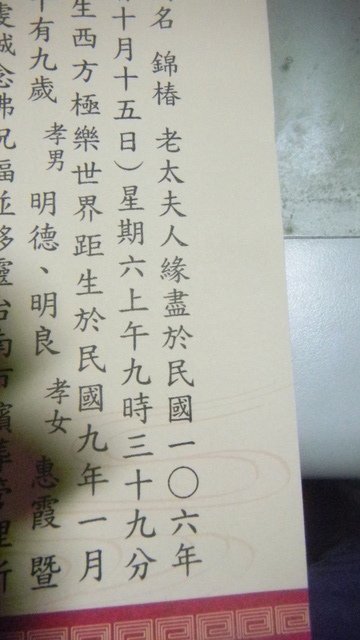 名 錦椿 老太夫人緣盡於民國一〇六年
十月十五日）星期六上午九時三十九分
生西方極樂世界距生於民國九年一月
有九歲 孝男 明德、明良 孝女 惠霞 暨
虔誠念佛祝福並移靈台南市殯葬管理所